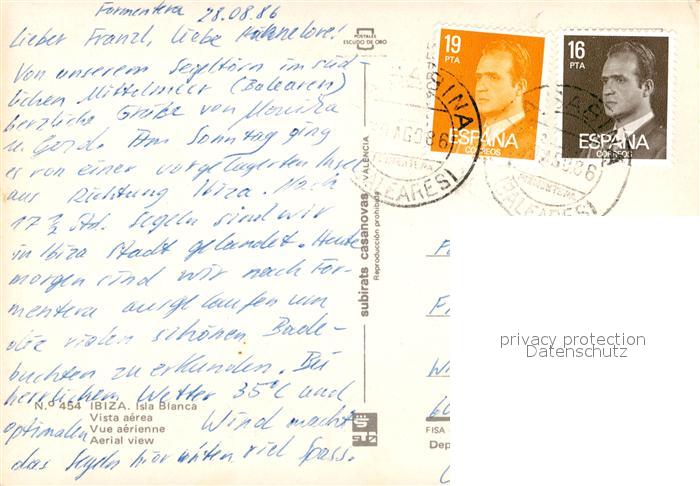 Formentera 28.08.86
Lieber Franzl, liebe Hannelore!
Von unserem Segeltörn im süd-
lichen Mittelmeer (Balearen)
herzliche Grüße von Monika
u. Gerd. Am Sonntag ging
es von einer vorgelagerten Insel
aus Richtung Ibiza. Nach
17 ½ Std. Segeln sind wir
in Ibiza Stadt gelandet. Heute
morgen sind wir nach For-
mentera ausgelaufen um
die vielen schönen Bade-
buchten zu erkunden. Bei
herrlichem Wetter 35°C und
optimalen Wind macht
das Segeln hier unten viel Spass.
Nº 454 IBIZA. Isla Blanca
Vista aérea
Vue aérienne
Aerial view
POSTALES
ESCUDO DE ORO
subirats casanovas
VALENCIA
Reproducción prohibida
FISA
Dep
19
PTA
ESPAÑA
CORREOS
16
PTA
ESPAÑA
CORREOS
AGO 86
FORMENTERA
(BALEARES)
AGO 86
FORMENTERA
(BALEARES)
privacy protection
Datenschutz